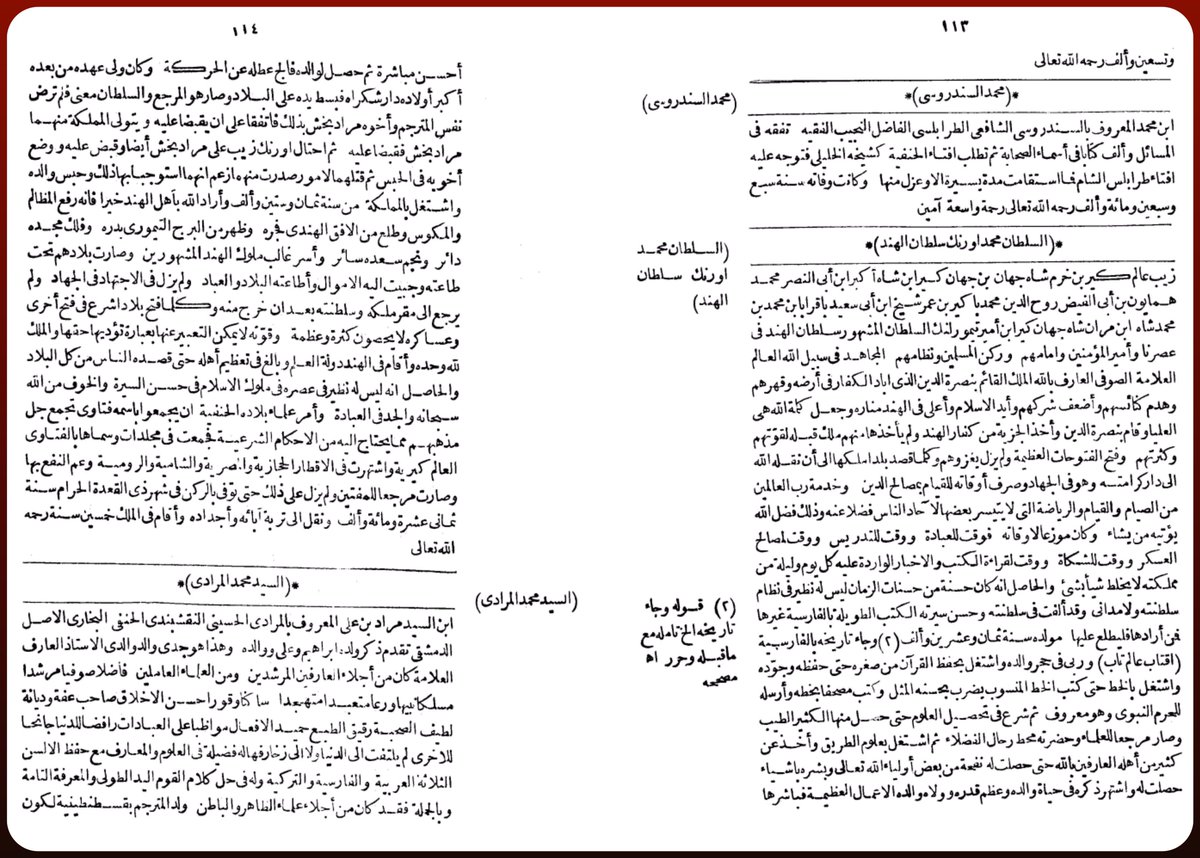 ١١٣
وتسعين وألف رحمه الله تعالى
*(محمد السندروسى)*
(محمد السندروسى)
ابن محمد المعروف بالسندروسى الشافعى الطرابلسى الفاضل النجيب الفقيه تفقه فى
المسائل وألف كتابا فى أسماء الصحابة ثم تطلب افتاء الحنفية كشيخه الخليلى فتوجه عليه
افتاء طرابلس الشام فما استقامت مدة يسيرة الا وعزل منها وكانت وفاته سنة سبع
وسبعين ومائة وألف رحمه الله تعالى رحمة واسعة آمين
*(السلطان محمد اورنك سلطان الهند)*
(السلطان محمد
اورنك سلطان
الهند)
زيب عالم كير بن خرم شاه جهان بن جهان كير ابن شاه أكبر ابن أبى النصر محمد
همايون بن أبى الفيض روح الدين محمد بابر بن عمر شيخ ابن أبى سعيد باقرا بابا محمد بن
محمد شاه ابن مران شاه جهان كير ابن أمير تيمورلنك السلطان المشهور سلطان الهند فى
عصرنا وأمير المؤمنين وامامهم وركن المسلمين ونظامهم المجاهد فى سبيل الله العالم
العلامة الصوفى العارف بالله الملك القائم بنصرة الدين الذى اباد الكفار فى أرضه وقهرهم
وهدم كنائسهم وأضعف شركهم وأيد الاسلام وأعلى فى الهند مناره وجعل كلمة الله هى
العليا وقام بنصرة الدين وأخذ الجزية من كفار الهند ولم يأخذها منهم ملك قبله لقوتهم
وكثرتهم وفتح الفتوحات العظيمة ولم يزل يغزوهم وكلما قصد بلدا ملكها الى أن نقله الله
الى دار كرامته وهو فى الجهاد وصرف أوقاته للقيام بمصالح الدين وخدمة رب العالمين
من الصيام والقيام والرياضة التى لا يتيسر بعضها لآحاد الناس فضلا عنه وذلك فضل الله
يؤتيه من يشاء وكان موزعا لاوقاته فوقت للعبادة ووقت للتدريس ووقت لمصالح
العسكر ووقت للشكاة ووقت لقراءة الكتب والاخبار الواردة عليه كل يوم وليلة من
مملكته لا يخلط شيأ بشئ والحاصل انه كان حسنة من حسنات الزمان ليس له نظير فى نظام
سلطنته ولا مدانى وقد ألفت فى سلطنته وحسن سيرته الكتب الطويلة بالفارسية وغيرها
فمن أرادها فليطلع عليها مولده سنة ثمان وعشرين وألف (٢) وجاء تاريخه بالفارسية
(اقتاب عالم تاب) وربى فى حجر والده واشتغل بحفظ القرآن من صغره حتى حفظه وجوّده
واشتغل بالخط حتى كتب الخط المنسوب يضرب بحسنه المثل وكتب مصحفا بخطه وأرسله
للحرم النبوى وهو معروف ثم شرع فى تحصيل العلوم حتى حصل منها الكثير الطيب
وصار مرجعا للعلماء وحضرته محط رحال الفضلاء ثم اشتغل بعلوم الطريق وأخذ عن
كثير من أهله العارفين بالله حتى حصلت له نفحة من بعض أولياء الله تعالى وبشره باشياء
حصلت له واشتهر ذكره فى حياة والده وعظم قدره وولاه والده الاعمال العظيمة فباشرها
(٢) قوله وجاء
تاريخه الخ تأمله مع
ماقبله وحرر اه
مصححه
١١٤
أحسن مباشرة ثم حصل لوالده فالج عطله عن الحركة وكان ولى عهده من بعده
أكبر أولاده دارشكراه فبسط يده على البلاد وصار هو المرجع والسلطان معنى فلم ترض
نفس المترجم وأخوه مراد بخش بذلك فاتفقا على ان يقبضا عليه ويتولى المملكة منهما
مراد بخش فقبضا عليه ثم احتال اورنك زيب على مراد بخش أيضا وقبض عليه ووضع
أخويه فى الحبس ثم قتلهما لامور صدرت منهما زعم انهما استوجبا بها ذلك وحبس والده
واشتغل بالمملكة من سنة ثمان وستين وألف وأراد الله بأهل الهند خيرا فانه رفع المظالم
والمكوس وطلع من الافق الهندى فجره وظهر من البرج التيمورى بدره وفلك مجده
دائر ونجم سعده سائر وأسر غالب ملوك الهند المشهورين وصارت بلادهم تحت
طاعته وجبيت اليه الاموال وأطاعته البلاد والعباد ولم يزل فى الاجتهاد فى الجهاد ولم
يرجع الى مقر ملكه وسلطنته بعد ان خرج منه وكلما فتح بلادا شرع فى فتح أخرى
وعساكره لا يحصون كثرة وعظمة وقوته لا يمكن التعبير عنها بعبارة تؤديها حقها والملك
لله وحده وأقام فى الهند دولة العلم وبالغ فى تعظيم أهله حتى قصده الناس من كل البلاد
والحاصل انه ليس له نظير فى عصره فى ملوك الاسلام فى حسن السيرة والخوف من الله
سبحانه والجد فى العبادة وأمر علماء بلاده الحنفية ان يجمعوا باسمه فتاوى تجمع جل
مذهبهم مما يحتاج اليه من الاحكام الشرعية فجمعت فى مجلدات وسماها بالفتاوى
العالم كيرية واشتهرت فى الاقطار الحجازية والمصرية والشامية والرومية وعم النفع بها
وصارت مرجعا للمفتين ولم يزل على ذلك حتى توفى بالركن فى شهر ذى القعدة الحرام سنة
ثمانى عشرة ومائة وألف ونقل الى تربة آبائه وأجداده وأقام فى الملك خمسين سنة رحمه
الله تعالى
*(السيد محمد المرادى)*
(السيد محمد المرادى)
ابن السيد مراد بن على المعروف بالمرادى الحسينى النقشبندى الحنفى البخارى الاصل
الدمشقى تقدم ذكر ولده ابراهيم وعلى ووالده وهذا هو جدى والد والدى الاستاذ العارف
العلامة كان من أجلاء العارفين المرشدين ومن العلماء العاملين فاضلا صوفيا مرشدا
مسلكا نبيها ورعا متعبدا متهجدا ساكنا وقورا حسن الاخلاق صاحب عفة وديانة
لطيف الصحبة رقيق الطبع حميد الافعال مواظبا على العبادات رافضا للدنيا جانحا
للاخرى لم يلتفت الى الدنيا ولا الى زخارفها له فضيلة فى العلوم والمعارف مع حفظ الالسن
الثلاثة العربية والفارسية والتركية وله فى حل كلام القوم اليد الطولى والمعرفة التامة
وبالجملة فقد كان من أجلاء علماء الظاهر والباطن ولد المترجم بقسطنطينية لكون